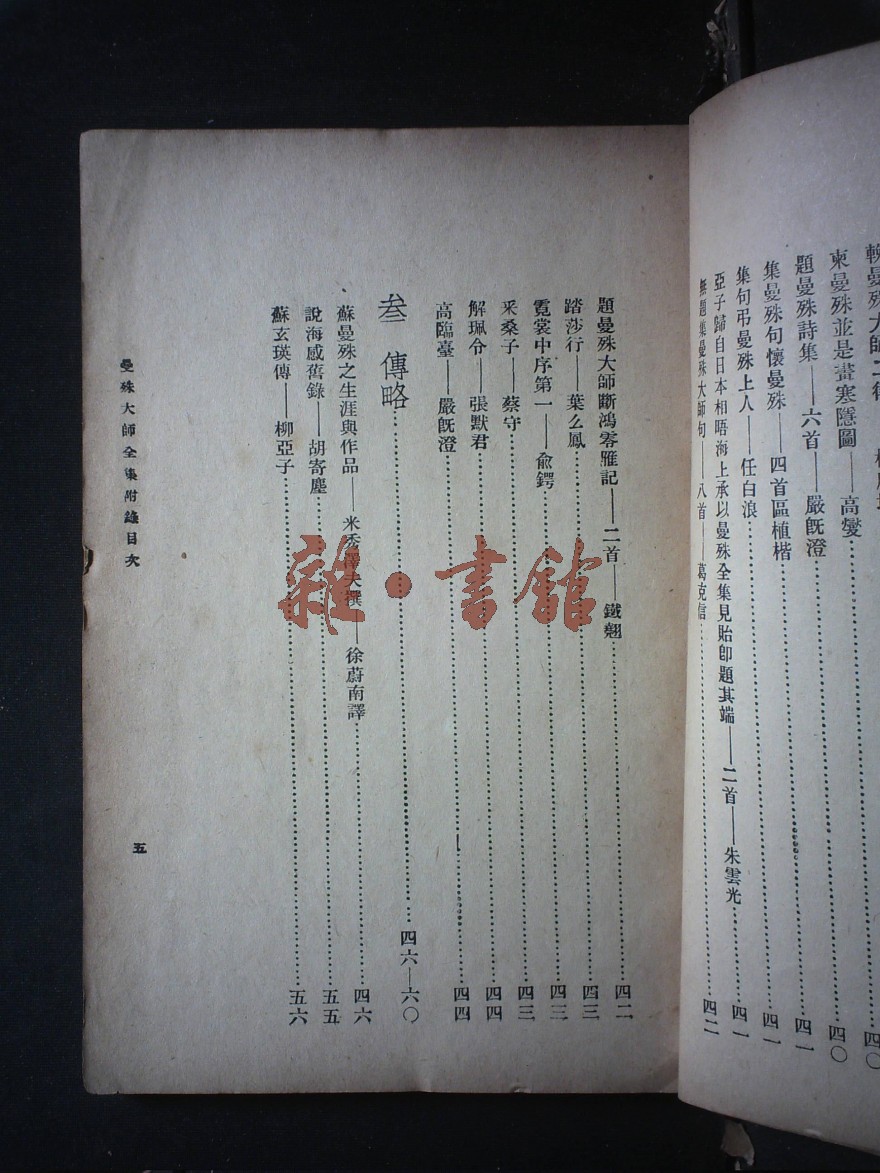 柬曼殊並是晝寒隱圖——高燮…………四〇
題曼殊詩集——六首——嚴旣澄…………四一
集曼殊句懷曼殊——四首區植楷…………四一
集句弔曼殊上人——任白浪…………四一
亞子歸自日本相晤海上承以曼殊全集見貽卽題其端——二首——朱雲光…………四二
無題集曼殊大師句——八首——葛克信…………四二
題曼殊大師斷鴻零雁記——二首——鐵翹…………四二
踏莎行——葉么鳳…………四三
霓裳中序第一——兪鍔…………四三
釆桑子——蔡守…………四三
解珮令——張默君…………四四
高臨臺——嚴旣澄…………四四
叁 傳略…………四六—六〇
蘇曼殊之生涯與作品——米澤夫撰——徐蔚南譯…………四六
說海感舊錄——胡寄塵…………五五
蘇玄瑛傳——柳亞子…………五六
曼殊大師全集附錄目次
五
雜·書館